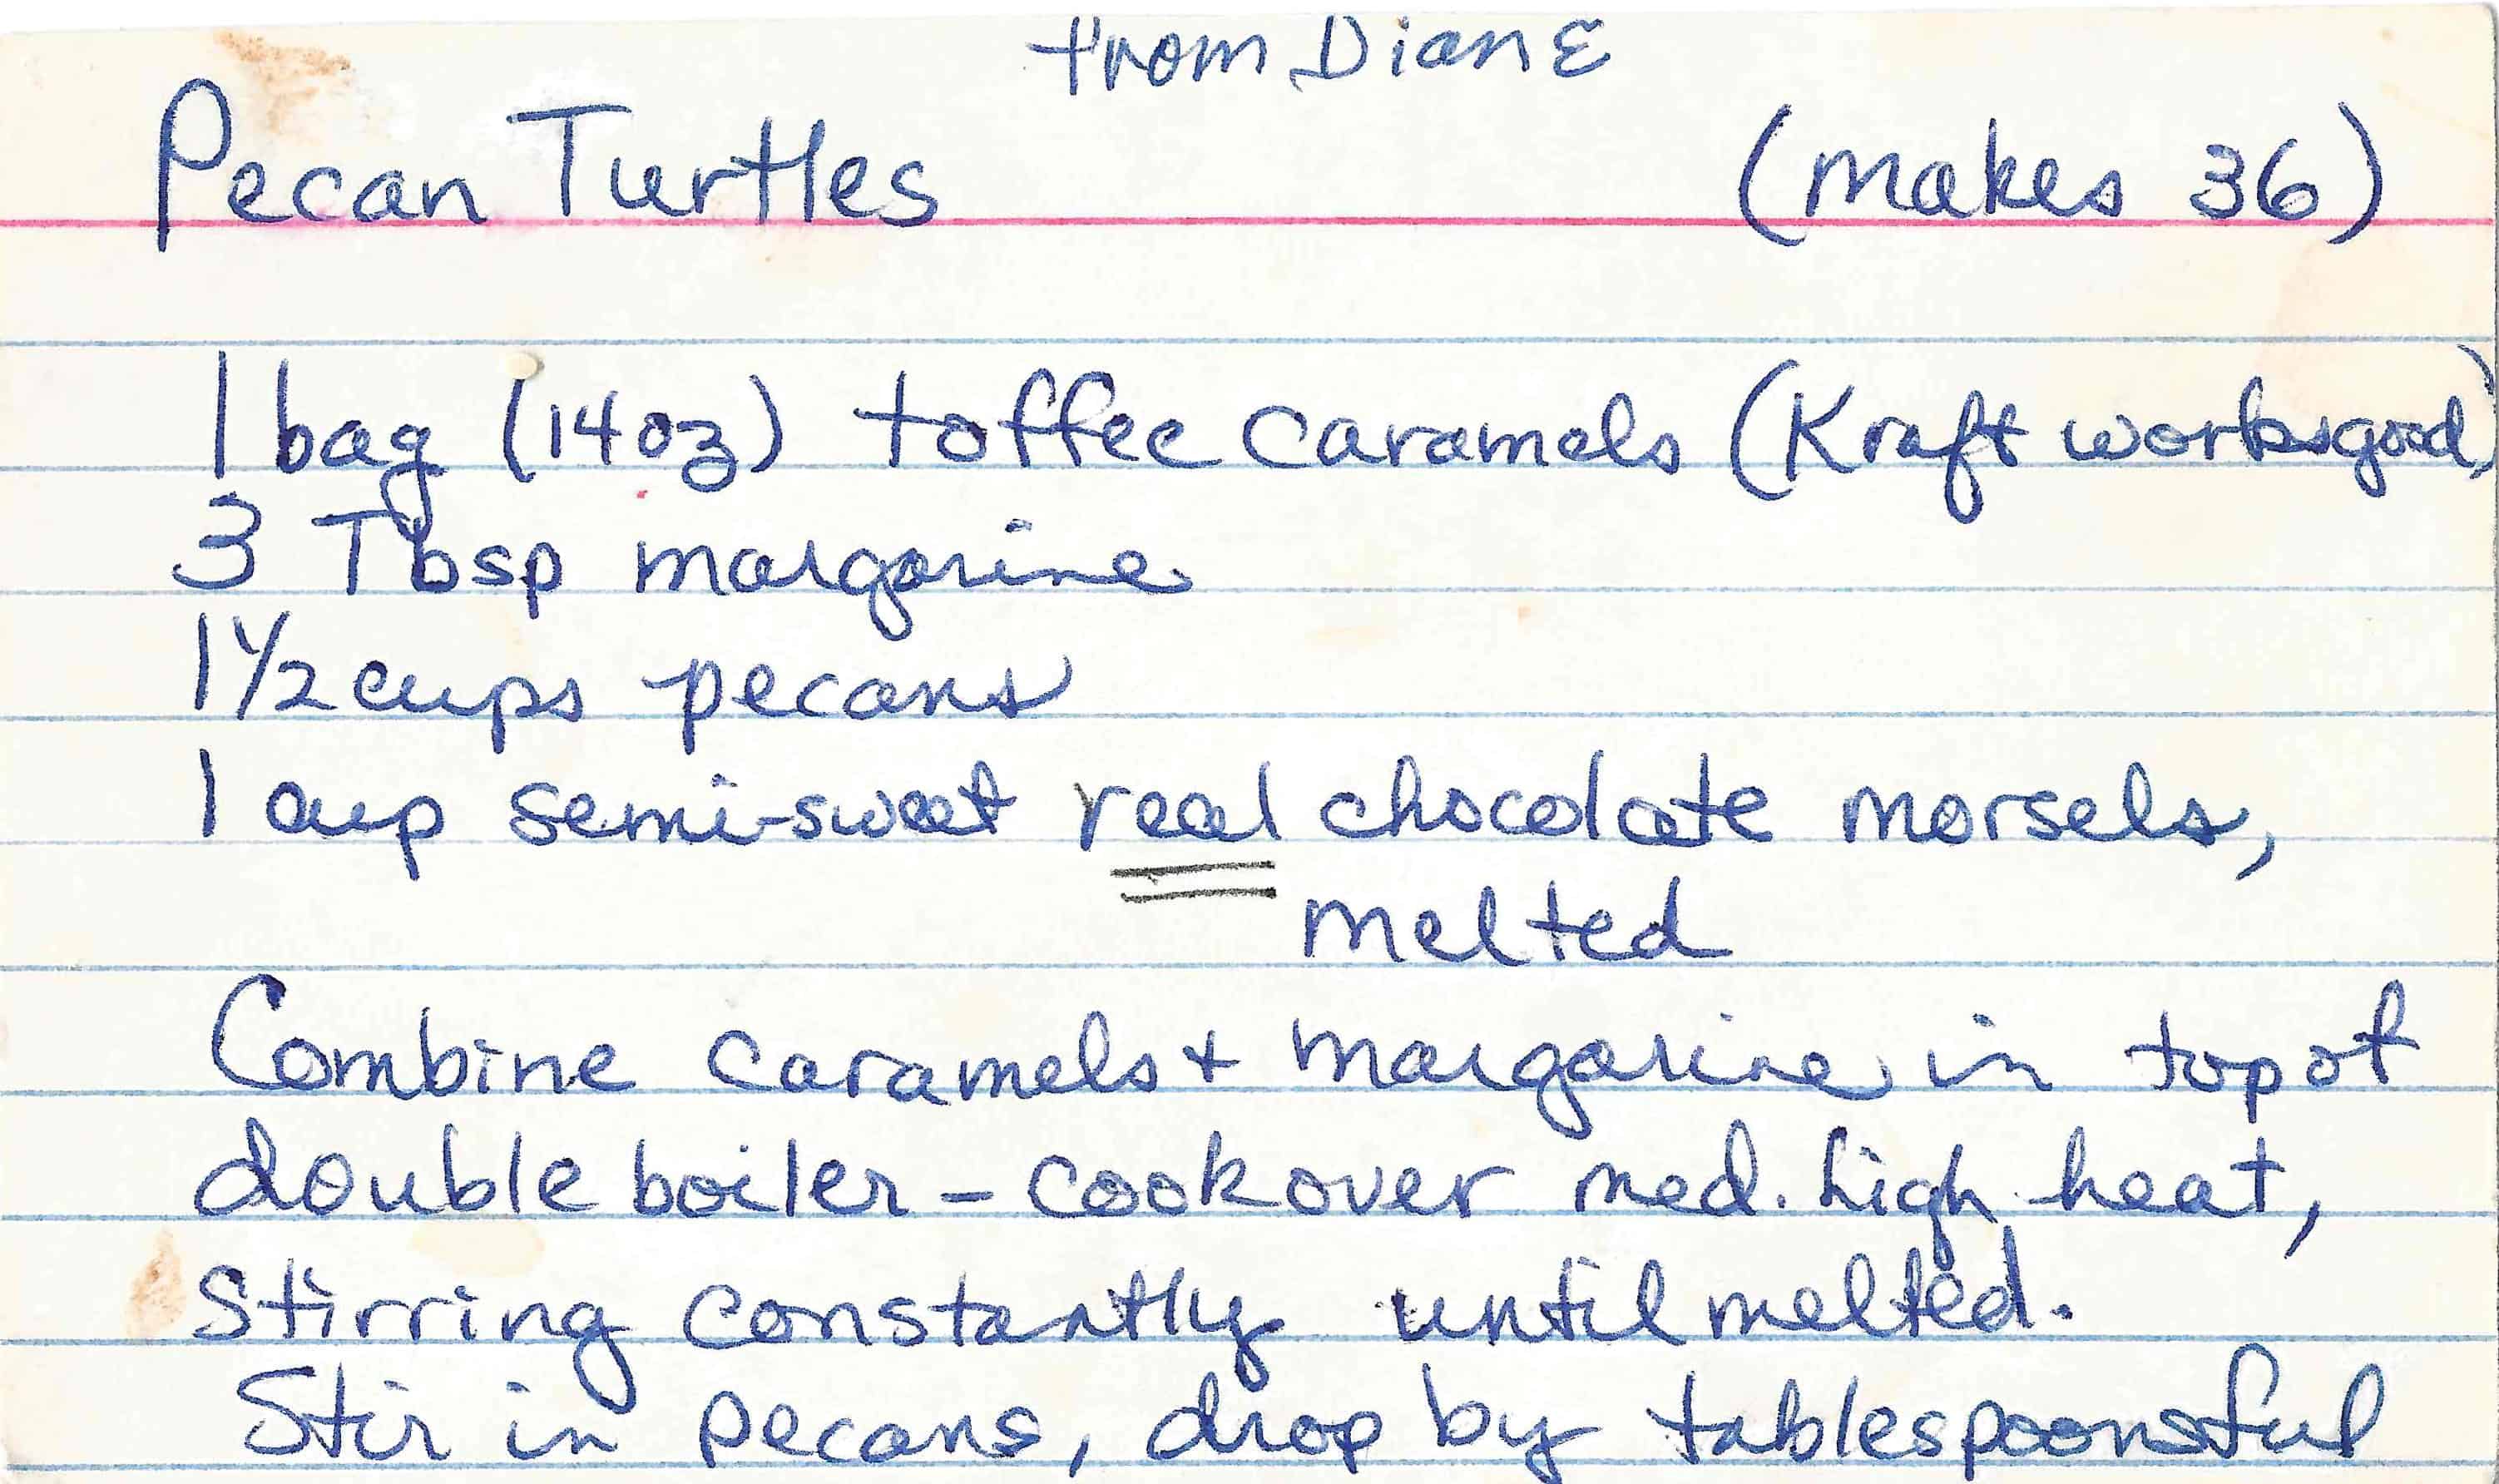 from Diane
Pecan Turtles (makes 36)
1 bag (14oz) toffee caramels (Kraft works good)
3 Tbsp margarine
1 1/2 cups pecans
1 cup semi-sweet real chocolate morsels,
melted
Combine caramels + margarine in top of
double boiler - cook over med. high heat,
Stirring constantly until melted.
Stir in pecans, drop by tablespoonsful